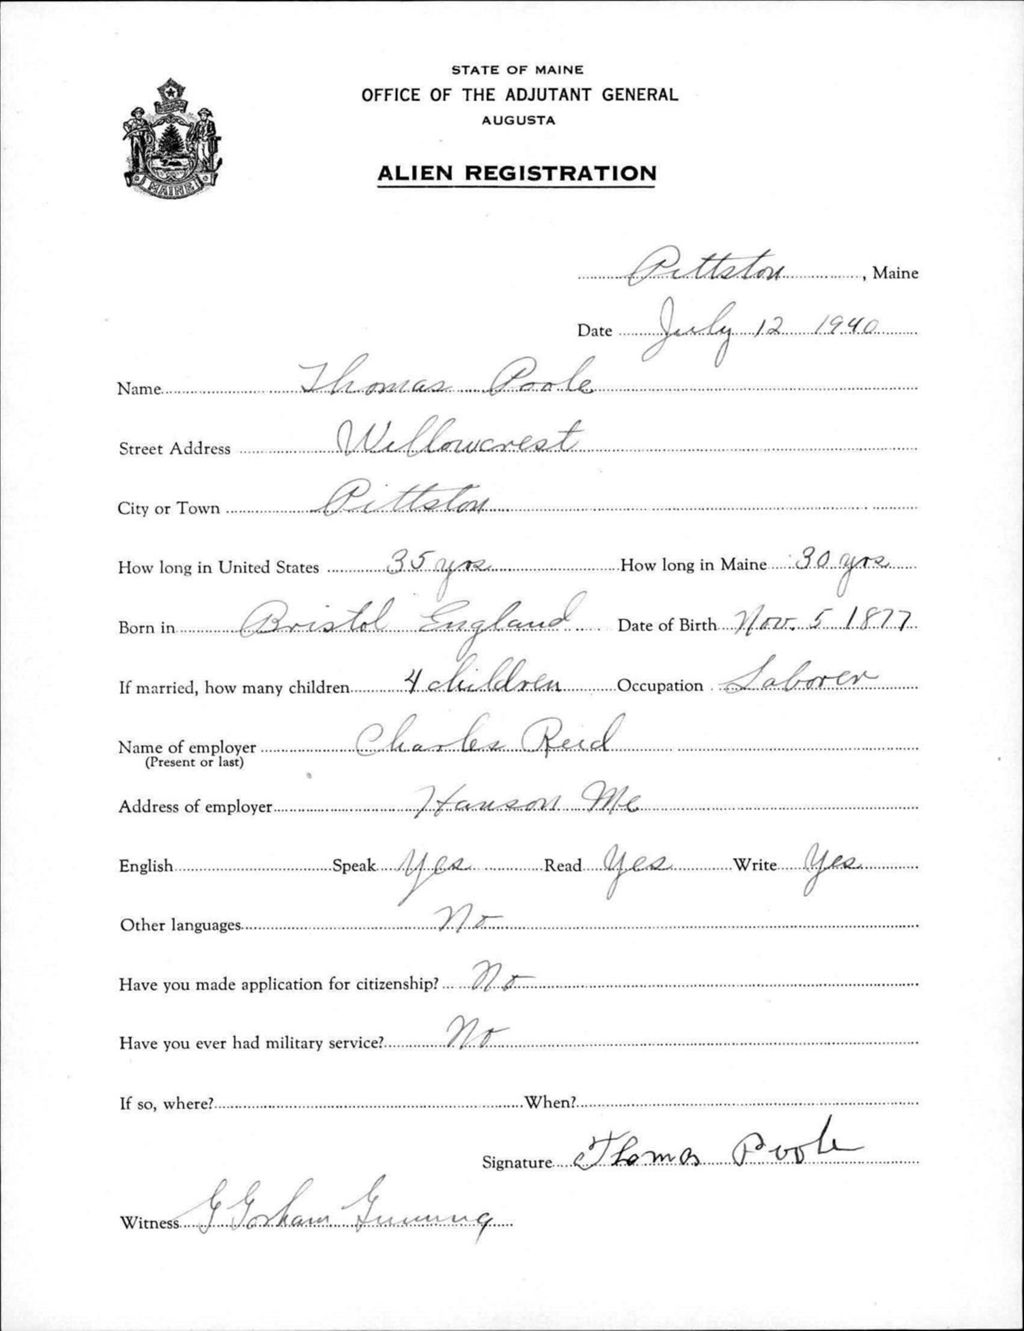 STATE OF MAINE
OFFICE OF THE ADJUTANT GENERAL
AUGUSTA
MAINE
ALIEN REGISTRATION
Pittston, Maine
Date July 12 1940
Name Thomas Poole
Street Address Willowcrest
City or Town Pittston
How long in United States 35 yrs How long in Maine 30 yrs
Born in Bristol England Date of Birth Nov. 5 1877
If married, how many children 4 children Occupation Laborer
Name of employer Charles Reed
(Present or last)
Address of employer Hanson Me
English Speak Yes Read Yes Write Yes
Other languages No
Have you made application for citizenship? No
Have you ever had military service? No
If so, where? When?
Signature Thomas Poole
Witness G Gorham